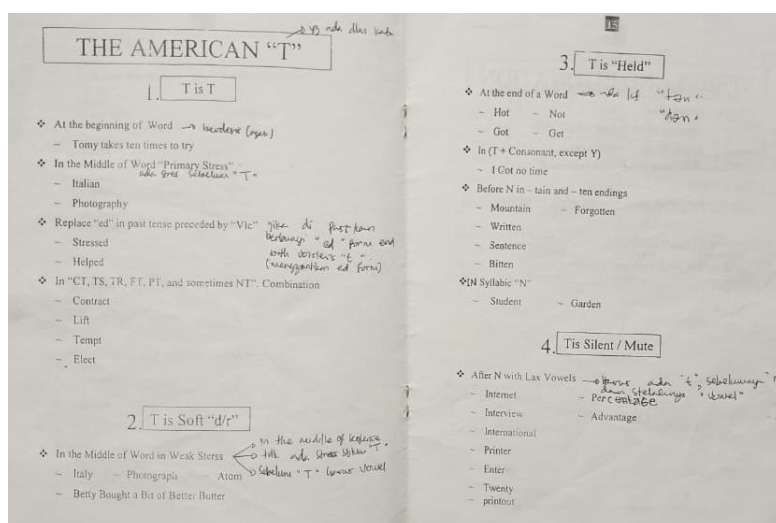 → yg ada dlm kata
THE AMERICAN “T”
1. T is T
❖ At the beginning of Word → berdesis (ngses)
~ Tomy takes ten times to try
❖ In the Middle of Word “Primary Stress”
ada stres sebelum “T”
~ Italian
~ Photography
❖ Replace “ed” in past tense preceded by “Vlc” jika di past kan
berbunyi “ed” form end
~ Stressed with voiceless “t”.
~ Helped (menggantikan ed form)
❖ In “CT, TS, TR, FT, PT, and sometimes NT”. Combination
~ Contract
~ Lift
~ Tempt
~ Elect
2. T is Soft “d/r”
→ in the middle of sentence
❖ In the Middle of Word in Weak Sterss → tdk ada stress “T”
→ Sebelum “T” harus vowel
~ Italy ~ Photograph ~ Atom
~ Betty Bought a Bit of Better Butter
15
3. T is “Held”
❖ At the end of a Word “tən”
~ Hot ~ Not “dən”
~ Got ~ Get
❖ In (T + Consonant, except Y)
~ I Got no time
❖ Before N in – tain and – ten endings
~ Mountain ~ Forgotten
~ Written
~ Sentence
~ Bitten
❖IN Syllabic “N”
~ Student ~ Garden
4. T is Silent / Mute
❖ After N with Lax Vowels → harus ada “t”, sebelumnya
dan setelahnya “vowel”
~ Internet ~ Percentage
~ Interview ~ Advantage
~ International
~ Printer
~ Enter
~ Twenty
~ printout